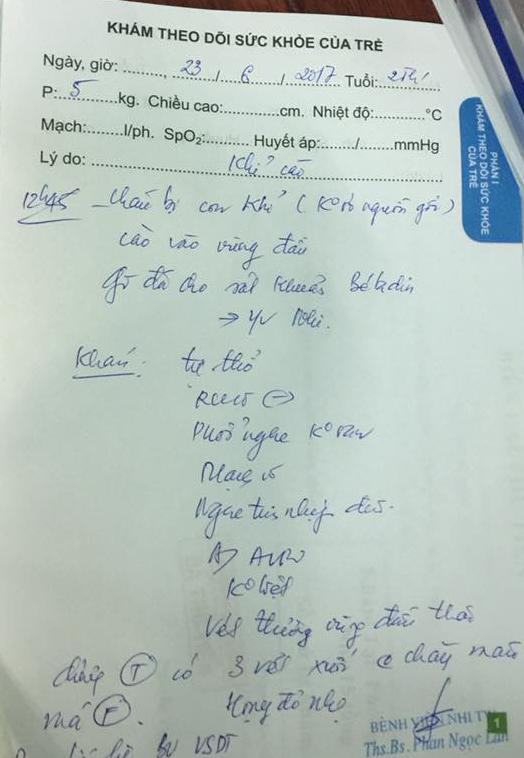 KHÁM THEO DÕI SỨC KHỎE CỦA TRẺ
Ngày, giờ: ........, 23 / 6 / 2017 Tuổi: 2 Th
P: 5 kg. Chiều cao:............cm. Nhiệt độ:............°C
Mạch:........l/ph. SpO2:............ Huyết áp:......./........mmHg
Lý do: Khỉ cào
PHẦN I
KHÁM THEO DÕI SỨC KHỎE
CỦA TRẺ
12h45 - cháu bị con khỉ (K° rõ nguồn gốc)
cào vào vùng đầu
Gđ đã cho sát khuẩn Bétadin
→ VV Nhi.
Khám: tự thở
RLLN ⊖
Phổi nghe K° ran
Mạch rõ
Ngực tim nhịp đều.
K° liệt
Vết thương vùng đầu thái
(T) có 3 vết xước chảy máu
má (F). Họng đỏ nhẹ
BỆNH VIỆN NHI TW
1
Ths.Bs. Phan Ngọc Lan